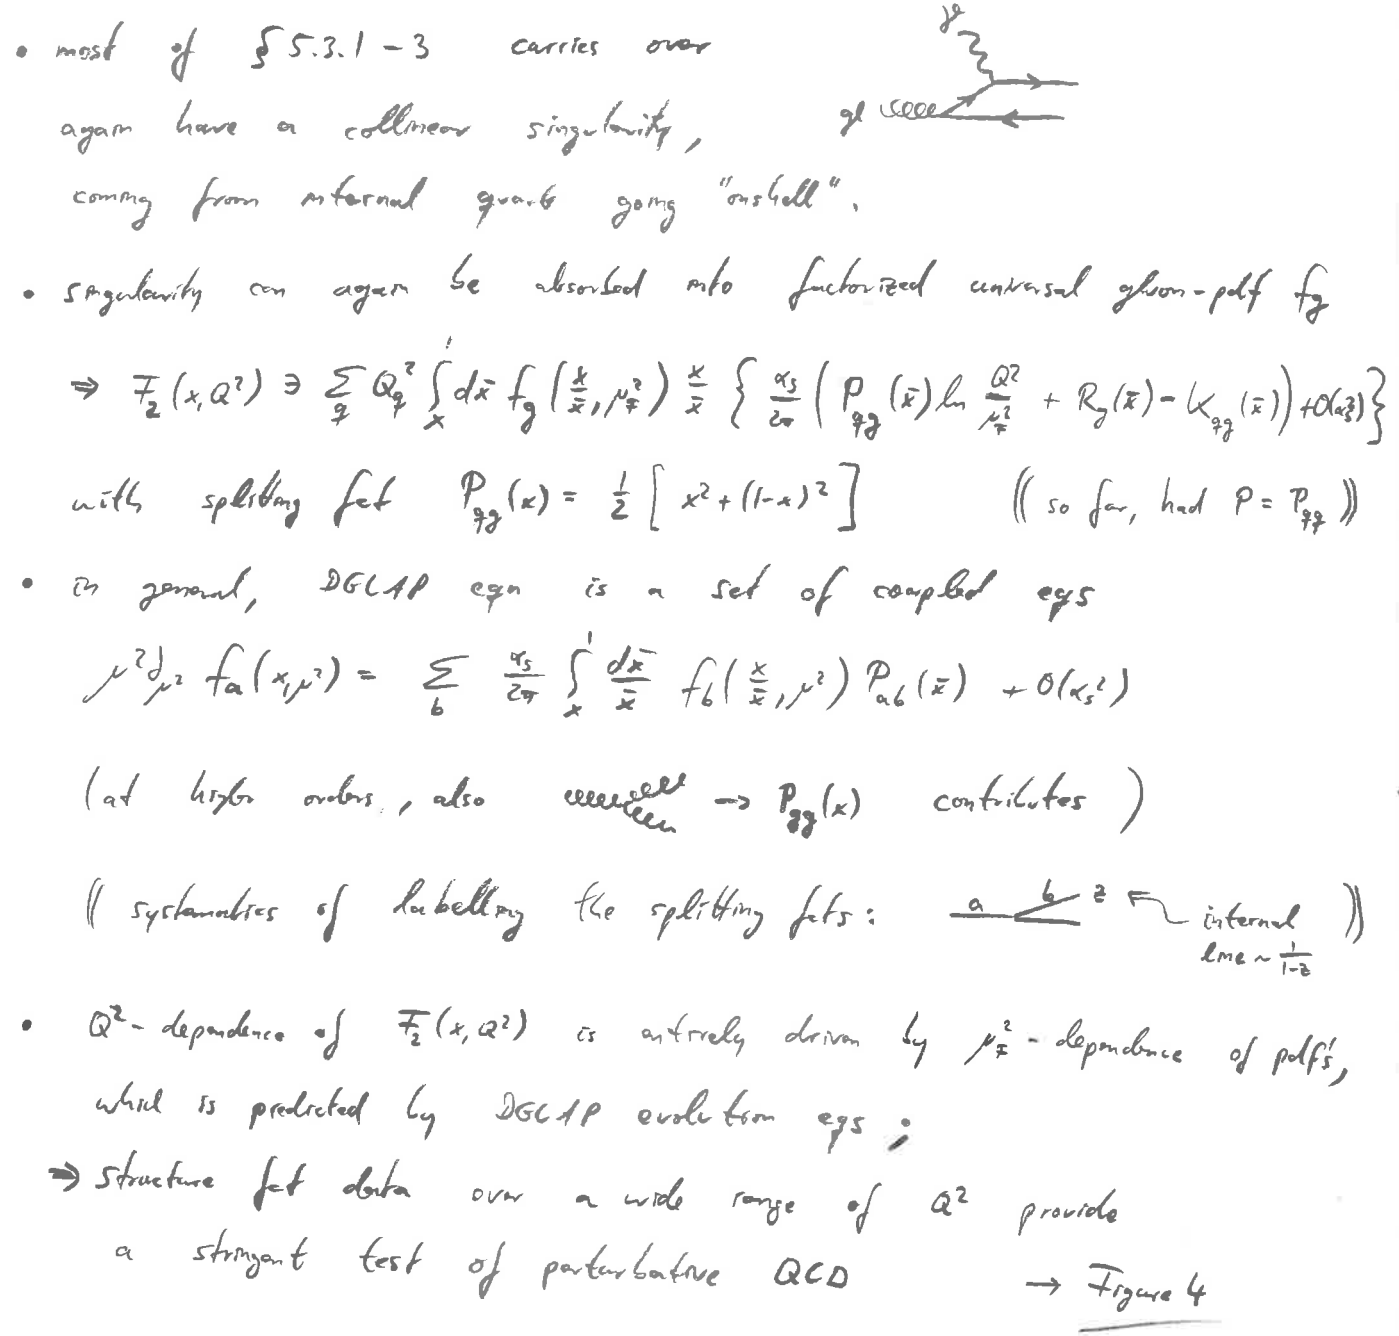 • most of § 5.3.1 – 3 carries over
γ*
again have a collinear singularity,
gl
coming from internal quark going "onshell".
• singularity can again be absorbed into factorized universal gluon-pdf f_g
⇒ F_2(x,Q²) ∋ Σ_q Q_q² ∫_x^1 dx̄ f_g(x/x̄, μ_F²) x/x̄ { α_s/2π ( P_qg(x̄) ln Q²/μ_F² + R_g(x̄) – K_qg(x̄) ) + O(α_s²) }
with splitting fct P_qg(x) = 1/2 [ x² + (1-x)² ] (( so far, had P = P_qq ))
• in general, DGLAP eqn is a set of coupled eqs
μ²∂_μ² f_a(x,μ²) = Σ_b α_s/2π ∫_x^1 dx̄/x̄ f_b(x/x̄, μ²) P_ab(x̄) + O(α_s²)
(at higher orders, also → P_gg(x) contributes )
(( systematics of labelling the splitting fcts: a b z internal line ~ 1/1-z ))
• Q²-dependence of F_2(x,Q²) is entirely driven by μ_F²-dependence of pdf's,
which is predicted by DGLAP evolution eqs ;
⇒ structure fct data over a wide range of Q² provide
a stringent test of perturbative QCD → Figure 4